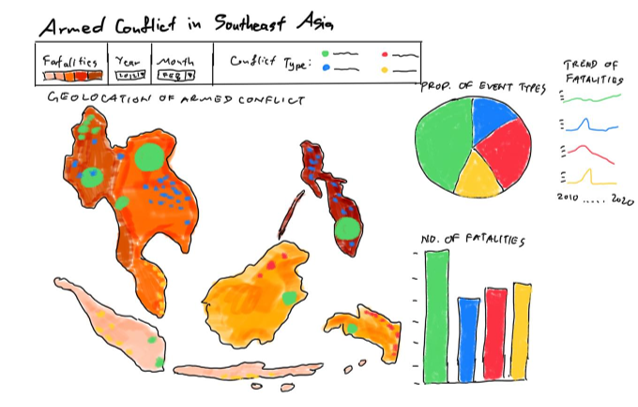 Armed Conflict in Southeast Asia
Fatalities
Year
Month
Conflict Type:
GEOLOCATION OF ARMED CONFLICT
PROP. OF EVENT TYPES
TREND OF
FATALITIES
2010 ..... 2020
NO. OF FATALITIES